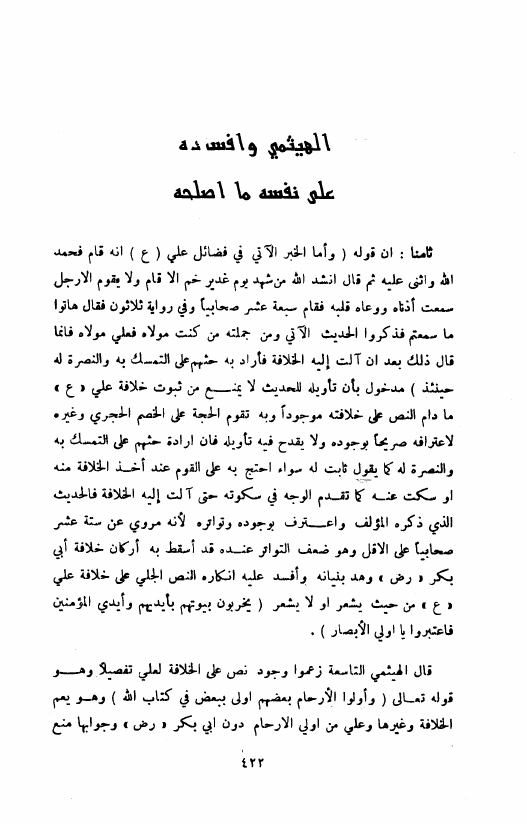 الهيثمي وافساده
على نفسه ما اصلحه
ثامنا : ان قوله ( وأما الخبر الآتي في فضائل علي ( ع ) انه قام فحمد
الله واثنى عليه ثم قال انشد الله من شهد يوم غدير خم الا قام ولا يقوم الا رجل
سمعت أذناه ووعاه قلبه فقام سبعة عشر صحابياً وفي رواية ثلاثون فقال هاتوا
ما سمعتم فذكروا الحديث الآتي ومن جملته من كنت مولاه فعلي مولاه فانما
قال ذلك بعد ان آلت إليه الخلافة فأراد به حثهم على التمسك به والنصرة له
حينئذ ) مدخول بأن تأويله للحديث لا يمنــع من ثبوت خلافة علي « ع »
ما دام النص على خلافته موجوداً وبه تقوم الحجة على الخصم الحجري وغيره
لاعترافه صريحاً بوجوده ولا يقدح فيه تأويله فان ارادة حثهم على التمسك به
والنصرة له كما يقول ثابت له سواء احتج به على القوم عند أخــذ الخلافة منه
او سكت عنــه كما تقــدم الوجه في سكوته حتى آلت إليه الخلافة فالحديث
الذي ذكره المؤلف واعــترف بوجوده وتواتره لأنه مروي عن ستة عشر
صحابياً على الاقل وهو ضعف التواتر عنــده قد أسقط به أركان خلافة أبي
بكر « رض » وهد بنيانه وأفسد عليه انكاره النص الجلي على خلافة علي
« ع » من حيث يشعر او لا يشعر ( يخربون بيوتهم بأيديهم وأيدي المؤمنين
فاعتبروا يا اولي الأبصار ) .
قال الهيثمي التاسعة زعموا وجود نص على الخلافة لعلي تفصيلاً وهــو
قوله تعــالى ( وأولوا الأرحام بعضهم اولى ببعض في كتاب الله ) وهــو يعم
الخلافة وغيرها وعلي من اولي الارحام دون ابي بكر « رض » وجوابها منع
٤٢٢